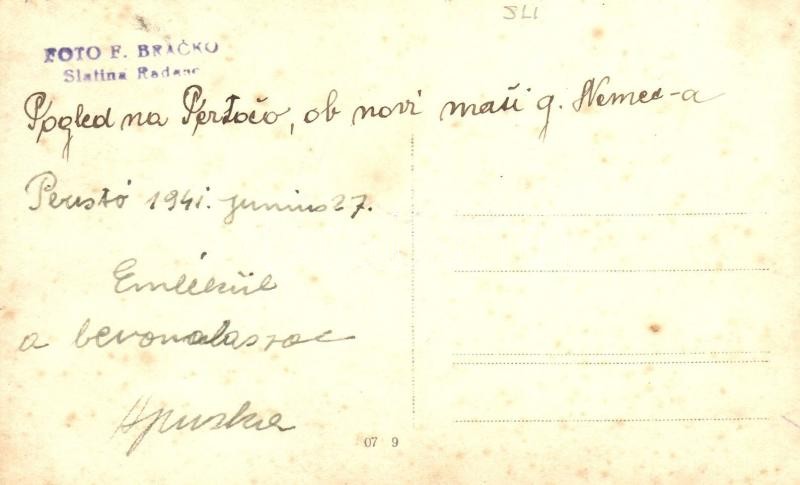 SLI
FOTO F. BRAČKO
Slatina Radenc
Pogled na Pertočo, ob novi maši g. Nemec-a
Perestó 1941. junius 27.
Emlékül
a bevonulasrae
07 9